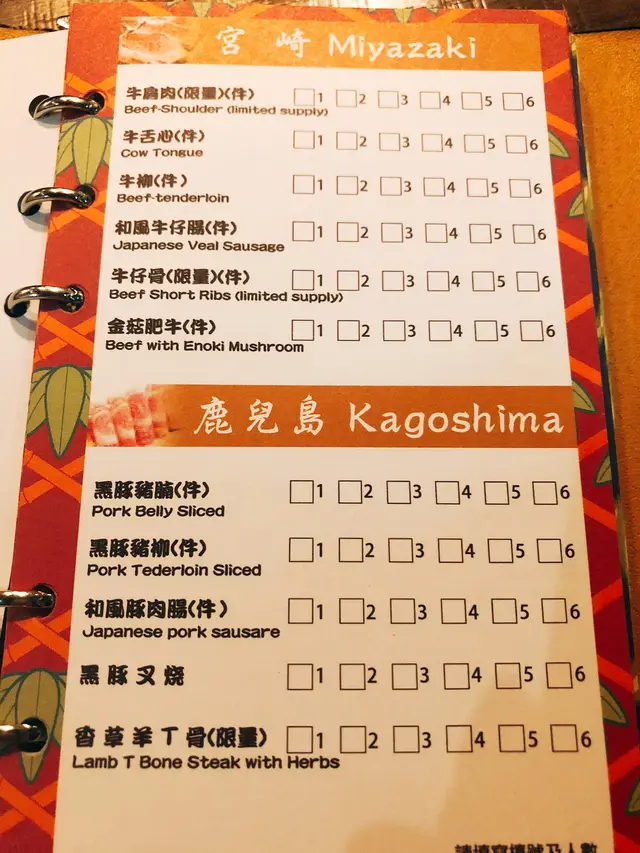 宮崎 Miyazaki
牛肩肉(限量)(件) 1 2 3 4 5 6
Beef-Shoulder (limited supply)
牛舌心(件) 1 2 3 4 5 6
Cow Tongue
牛柳(件) 1 2 3 4 5 6
Beef-tenderloin
和風牛仔腸(件) 1 2 3 4 5 6
Japanese Veal Sausage
牛仔骨(限量)(件) 1 2 3 4 5 6
Beef Short Ribs (limited supply)
金菇肥牛(件) 1 2 3 4 5 6
Beef with Enoki Mushroom
鹿兒島 Kagoshima
黑豚豬腩(件) 1 2 3 4 5 6
Pork Belly Sliced
黑豚豬柳(件) 1 2 3 4 5 6
Pork Tederloin Sliced
和風豚肉腸(件) 1 2 3 4 5 6
Japanese pork sausare
黑豚叉燒 1 2 3 4 5 6
香草羊T骨(限量) 1 2 3 4 5 6
Lamb T Bone Steak with Herbs
請填寫檯號及人數